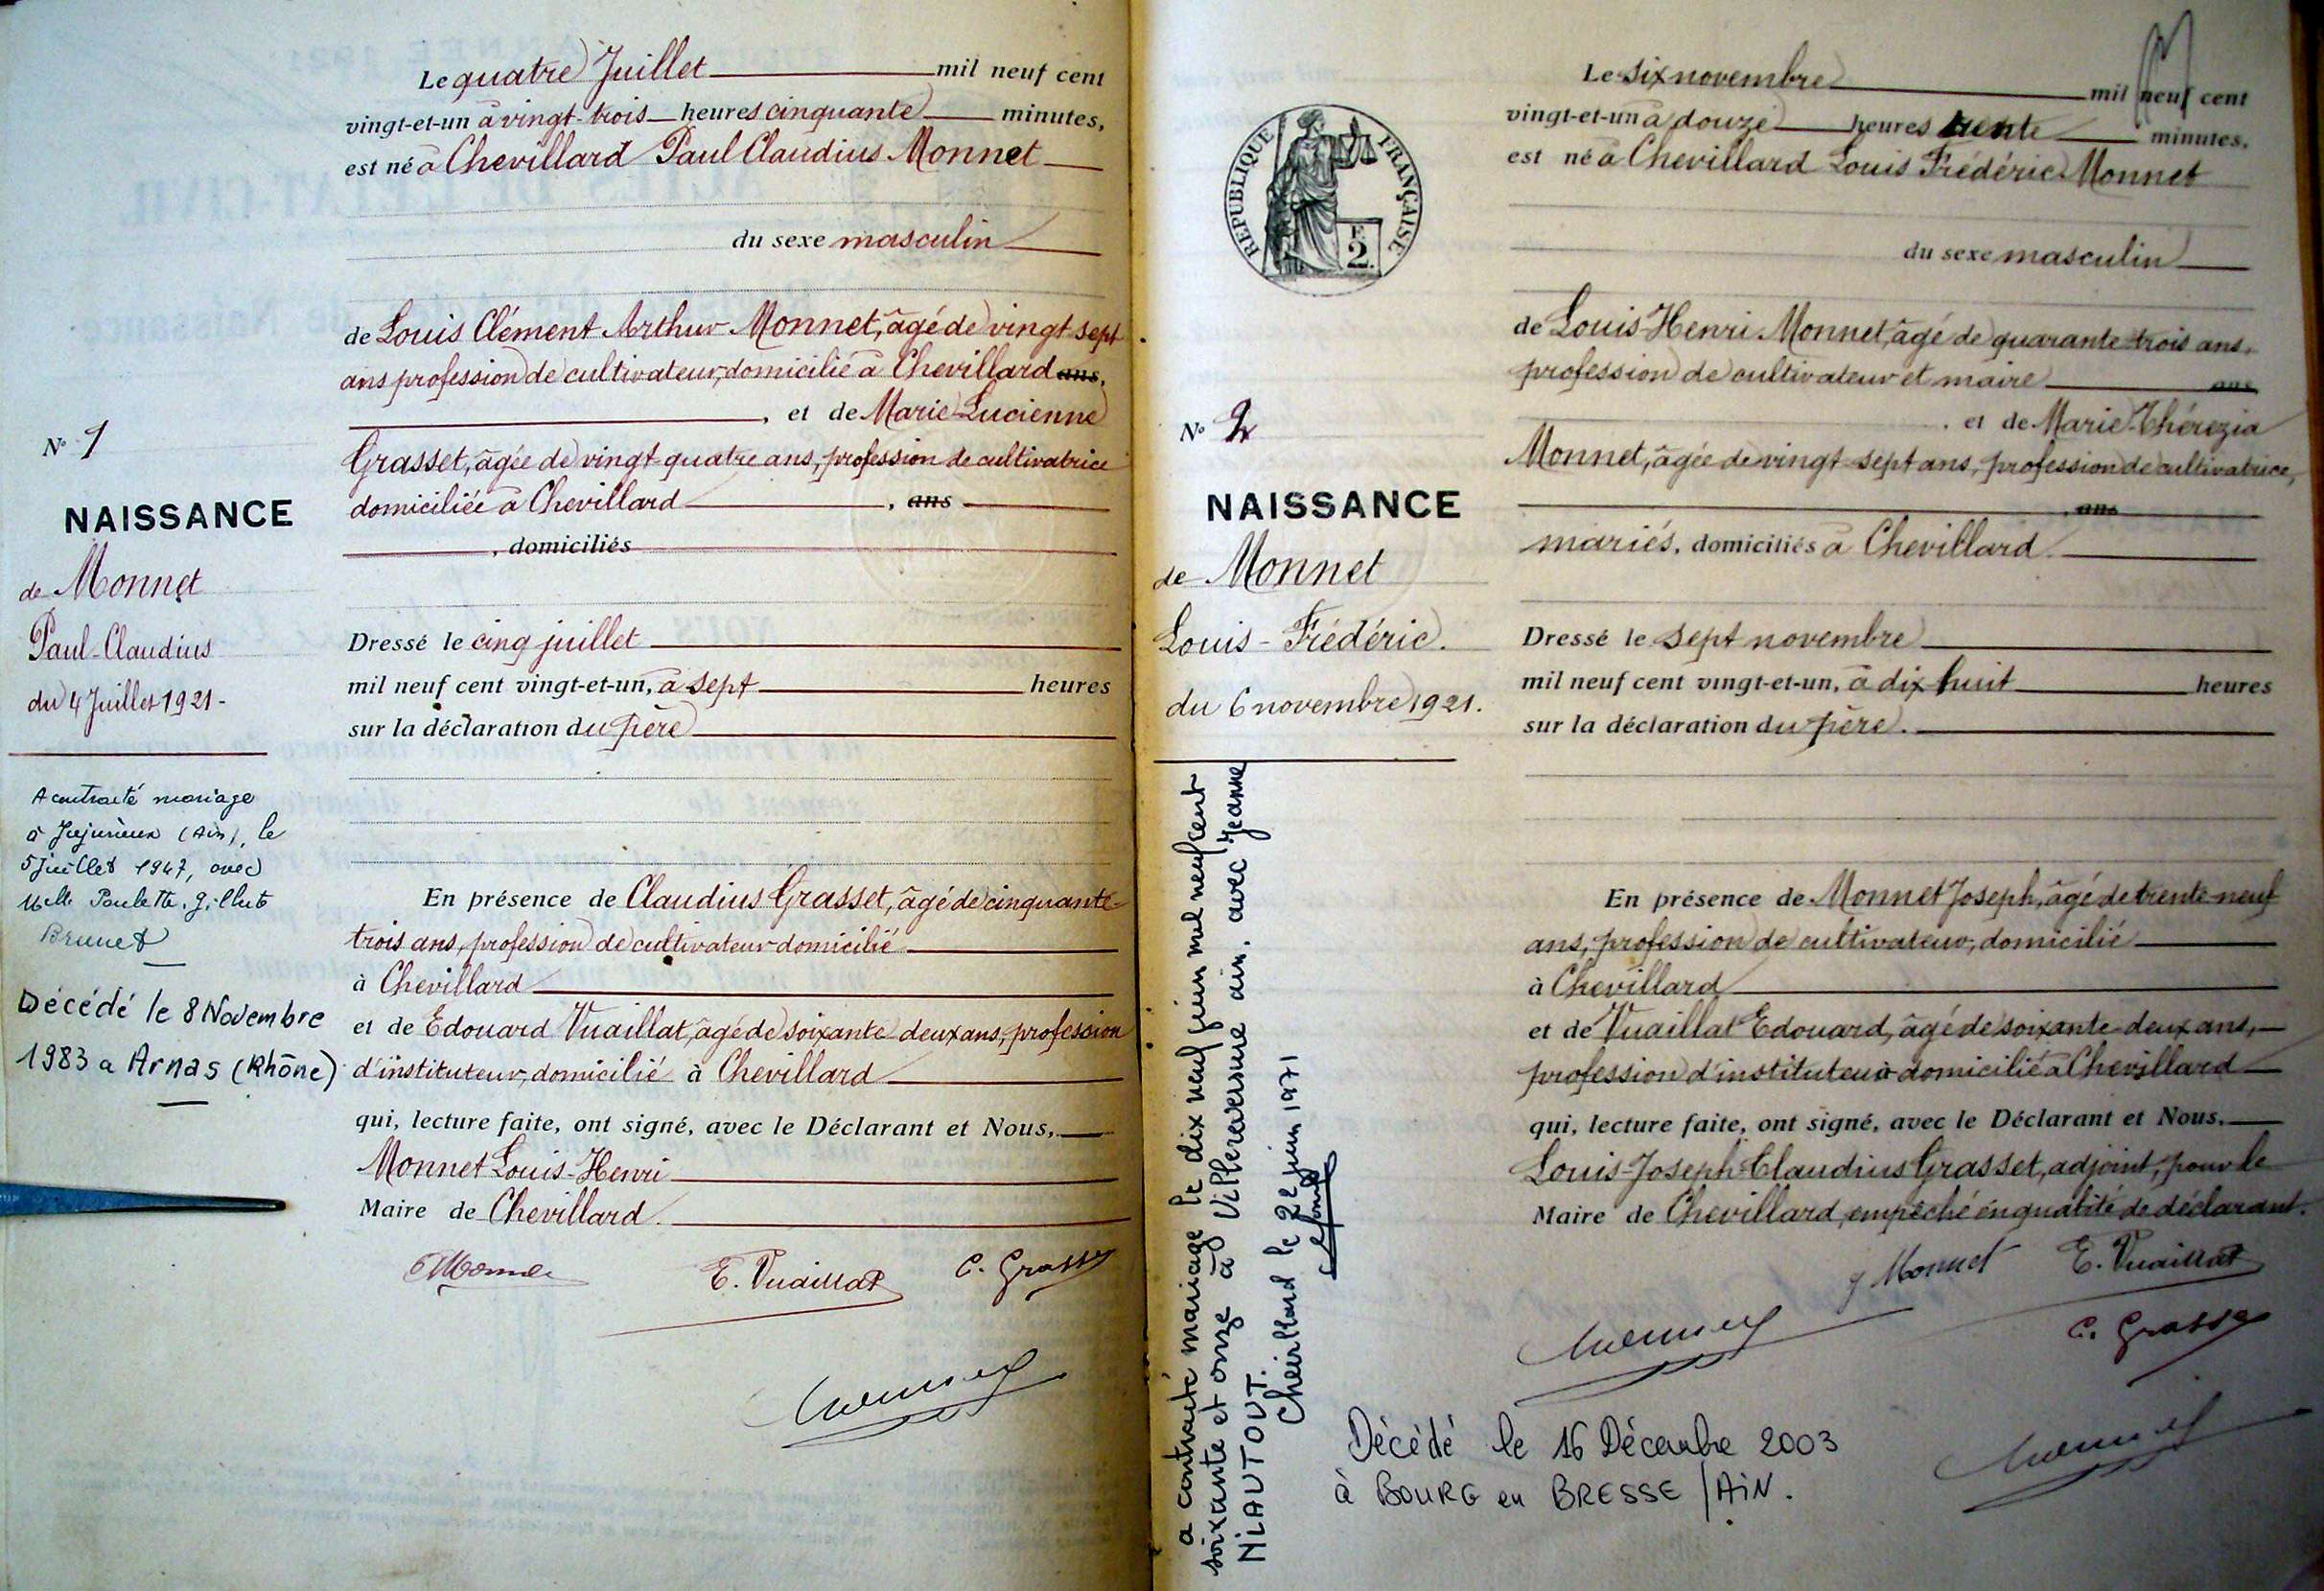 Le quatre Juillet mil neuf cent
vingt-et-un à vingt-trois heures cinquante minutes,
est né à Chevillard Paul Claudius Monnet
du sexe masculin
de Louis Clément Arthur Monnet, âgé de vingt sept
ans profession de cultivateur, domicilié à Chevillard ans,
, et de Marie Lucienne
Grasset, âgée de vingt-quatre ans, profession de cultivatrice
domiciliée à Chevillard , ans
, domiciliés
Dressé le cinq juillet
mil neuf cent vingt-et-un, à sept heures
sur la déclaration du père
En présence de Claudius Grasset, âgé de cinquante-
trois ans, profession de cultivateur domicilié
à Chevillard
et de Edouard Vuaillat, âgé de soixante deux ans, profession
d'instituteur, domicilié à Chevillard
qui, lecture faite, ont signé, avec le Déclarant et Nous,
Monnet Louis-Henri
Maire de Chevillard.
E. Vuaillat C. Grasset
N° 1
NAISSANCE
de Monnet
Paul-Claudius
du 4 Juillet 1921-
A contracté mariage
à Jujurieux (Ain), le
5 juillet 1947, avec
Melle Paulette, Gilberte
Brunet
Décédé le 8 Novembre
1983 a Arnas (Rhône)
RÉPUBLIQUE FRANÇAISE
2.
Le six novembre mil neuf cent
vingt-et-un à douze heures trente minutes,
est né à Chevillard Louis Frédéric Monnet
du sexe masculin
de Louis-Henri Monnet, âgé de quarante-trois ans,
profession de cultivateur et maire ans
, et de Marie-Thérézia
Monnet, âgée de vingt-sept ans, profession de cultivatrice,
, ans
mariés, domiciliés à Chevillard
Dressé le sept novembre
mil neuf cent vingt-et-un, à dix huit heures
sur la déclaration du père.
En présence de Monnet Joseph, âgé de trente-neuf
ans, profession de cultivateur, domicilié
à Chevillard
et de Vuaillat Edouard, âgé de soixante-deux ans,
profession d'instituteur domicilié à Chevillard
qui, lecture faite, ont signé, avec le Déclarant et Nous,
Louis-Joseph-Claudius Grasset, adjoint, pour le
Maire de Chevillard, empêché en qualité de déclarant.
J Monnet E. Vuaillat
C. Grasset
N° 2
NAISSANCE
de Monnet
Louis-Frédéric.
du 6 novembre 1921.
a contracté mariage le dix neuf juin mil neuf cent
soixante et onze à Villereversure ain. avec Jeanne
NIAUTOUT.
Chevillard le 22 juin 1971
Décédé le 16 Décembre 2003
à BOURG en BRESSE / AIN.